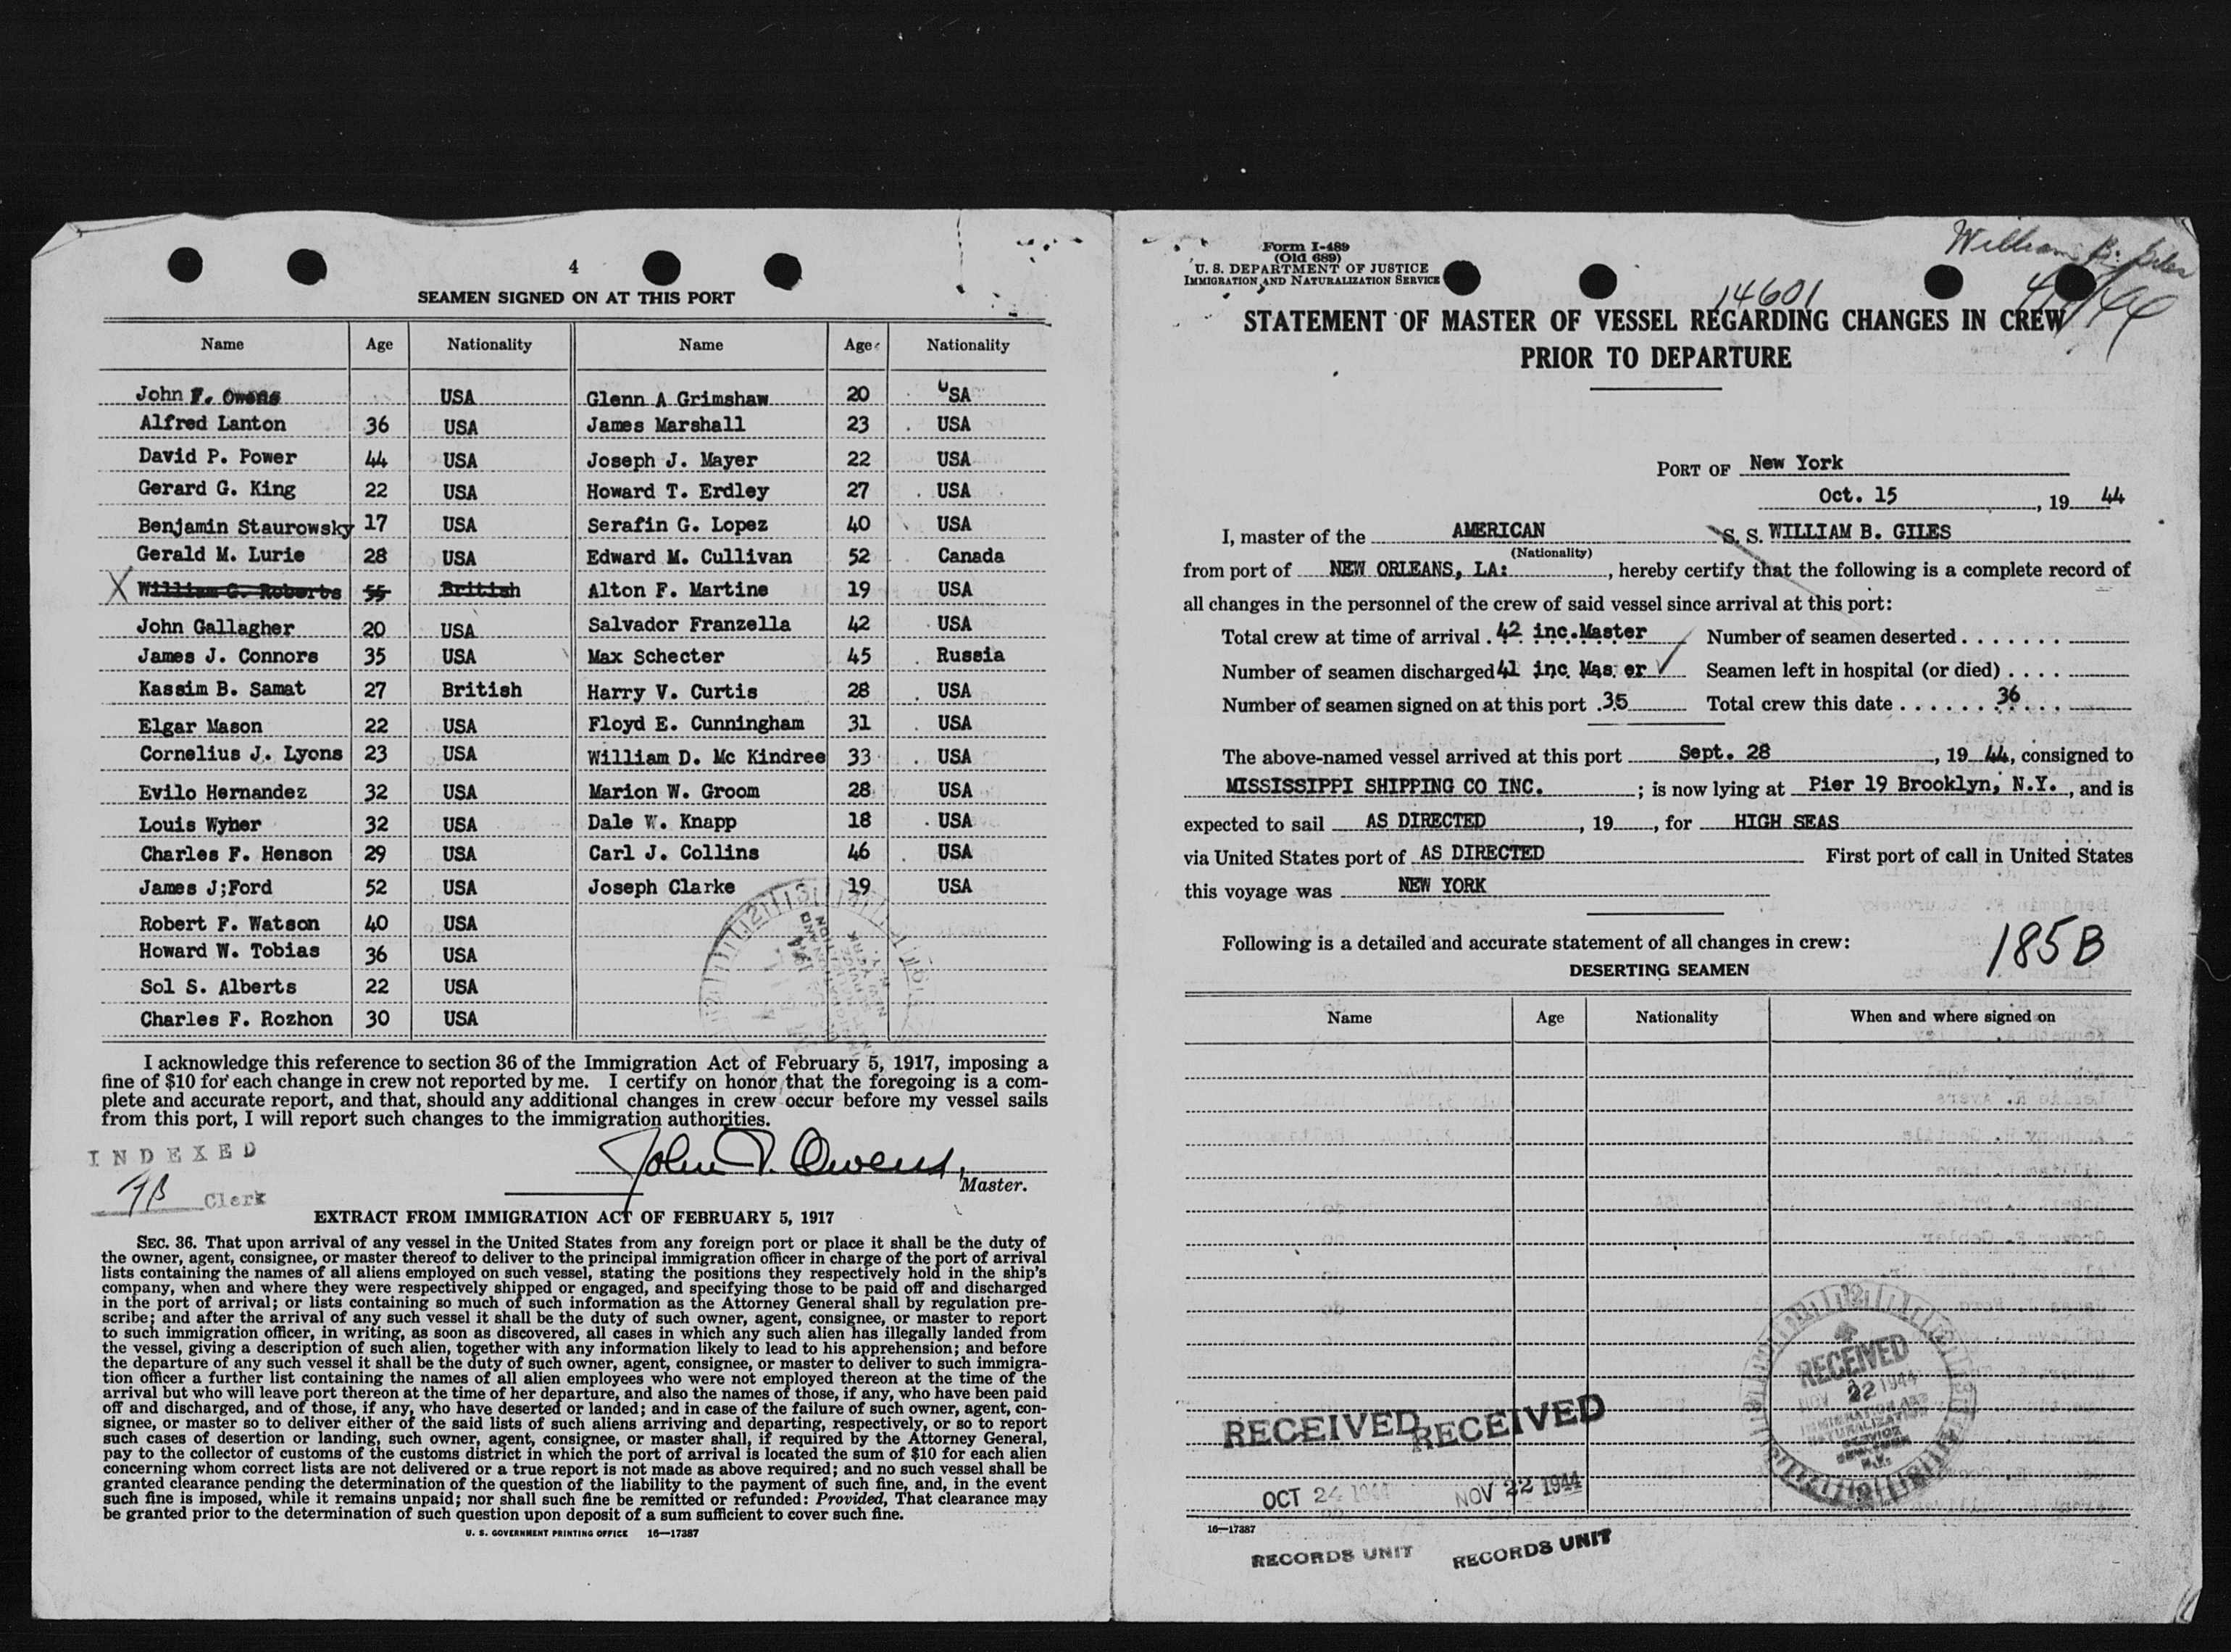 4
SEAMEN SIGNED ON AT THIS PORT
Name Age Nationality Name Age Nationality
John F. Owens USA Glenn A Grimshaw 20 USA
Alfred Lanton 36 USA James Marshall 23 USA
David P. Power 44 USA Joseph J. Mayer 22 USA
Gerard G. King 22 USA Howard T. Erdley 27 USA
Benjamin Staurowsky 17 USA Serafin G. Lopez 40 USA
Gerald M. Lurie 28 USA Edward M. Cullivan 52 Canada
X William G. Roberts 55 British Alton F. Martine 19 USA
John Gallagher 20 USA Salvador Franzella 42 USA
James J. Connors 35 USA Max Schecter 45 Russia
Kassim B. Samat 27 British Harry V. Curtis 28 USA
Elgar Mason 22 USA Floyd E. Cunningham 31 USA
Cornelius J. Lyons 23 USA William D. Mc Kindree 33 USA
Evilo Hernandez 32 USA Marion W. Groom 28 USA
Louis Wyher 32 USA Dale W. Knapp 18 USA
Charles F. Henson 29 USA Carl J. Collins 46 USA
James J;Ford 52 USA Joseph Clarke 19 USA
Robert F. Watson 40 USA
Howard W. Tobias 36 USA
Sol S. Alberts 22 USA
Charles F. Rozhon 30 USA
I acknowledge this reference to section 36 of the Immigration Act of February 5, 1917, imposing a
fine of $10 for each change in crew not reported by me. I certify on honor that the foregoing is a com-
plete and accurate report, and that, should any additional changes in crew occur before my vessel sails
from this port, I will report such changes to the immigration authorities.
INDEXED
Clerk
John F. Owens,
Master.
EXTRACT FROM IMMIGRATION ACT OF FEBRUARY 5, 1917
SEC. 36. That upon arrival of any vessel in the United States from any foreign port or place it shall be the duty of
the owner, agent, consignee, or master thereof to deliver to the principal immigration officer in charge of the port of arrival
lists containing the names of all aliens employed on such vessel, stating the positions they respectively hold in the ship's
company, when and where they were respectively shipped or engaged, and specifying those to be paid off and discharged
in the port of arrival; or lists containing so much of such information as the Attorney General shall by regulation pre-
scribe; and after the arrival of any such vessel it shall be the duty of such owner, agent, consignee, or master to report
to such immigration officer, in writing, as soon as discovered, all cases in which any such alien has illegally landed from
the vessel, giving a description of such alien, together with any information likely to lead to his apprehension; and before
the departure of any such vessel it shall be the duty of such owner, agent, consignee, or master to deliver to such immigra-
tion officer a further list containing the names of all alien employees who were not employed thereon at the time of the
arrival but who will leave port thereon at the time of her departure, and also the names of those, if any, who have been paid
off and discharged, and of those, if any, who have deserted or landed; and in case of the failure of such owner, agent, con-
signee, or master so to deliver either of the said lists of such aliens arriving and departing, respectively, or so to report
such cases of desertion or landing, such owner, agent, consignee, or master shall, if required by the Attorney General,
pay to the collector of customs of the customs district in which the port of arrival is located the sum of $10 for each alien
concerning whom correct lists are not delivered or a true report is not made as above required; and no such vessel shall be
granted clearance pending the determination of the question of the liability to the payment of such fine, and, in the event
such fine is imposed, while it remains unpaid; nor shall such fine be remitted or refunded: Provided, That clearance may
be granted prior to the determination of such question upon deposit of a sum sufficient to cover such fine.
U. S. GOVERNMENT PRINTING OFFICE 16—17387
Form I-489
(Old 689)
U. S. DEPARTMENT OF JUSTICE
IMMIGRATION AND NATURALIZATION SERVICE
William B. Giles
14601
STATEMENT OF MASTER OF VESSEL REGARDING CHANGES IN CREW
PRIOR TO DEPARTURE
PORT OF New York
Oct. 15, 19 44
I, master of the AMERICAN S. S. WILLIAM B. GILES
(Nationality)
from port of NEW ORLEANS, LA:, hereby certify that the following is a complete record of
all changes in the personnel of the crew of said vessel since arrival at this port:
Total crew at time of arrival . 42 inc.Master Number of seamen deserted . . . . . . .
Number of seamen discharged 41 inc Mas er Seamen left in hospital (or died) . . . .
Number of seamen signed on at this port . 35 Total crew this date . . . . . . 36 . . . .
The above-named vessel arrived at this port Sept. 28, 19 44, consigned to
MISSISSIPPI SHIPPING CO INC. ; is now lying at Pier 19 Brooklyn, N.Y., and is
expected to sail AS DIRECTED, 19, for HIGH SEAS
via United States port of AS DIRECTED First port of call in United States
this voyage was NEW YORK
Following is a detailed and accurate statement of all changes in crew:
185B
DESERTING SEAMEN
Name Age Nationality When and where signed on
RECEIVED
NOV 22 1944
IMMIGRATION AND
NATURALIZATION
SERVICE
NEW YORK
N.Y.
RECEIVED RECEIVED
OCT 24 1944 NOV 22 1944
16—17387
RECORDS UNIT RECORDS UNIT